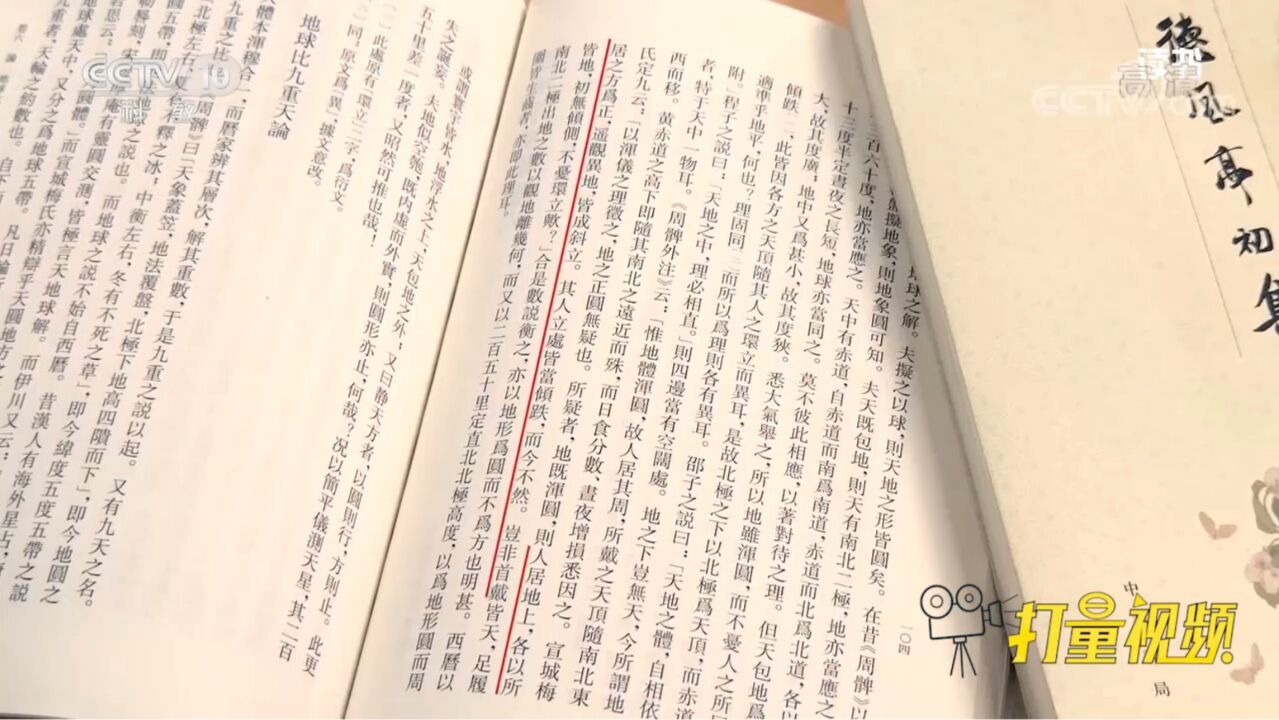 CCTV 10
科教
高清
德風亭初集
中
局
打量視頻
一〇四
地球之解。夫擬之以球,則天地之形皆圓矣。在昔《周髀》以
擬地象,則地象圓可知。夫天既包地,則天有南北二極,地亦當應之
三百六十度,地亦當應之。天中有赤道,自赤道而南爲南道,赤道而北爲北道,各以
十三度半定晝夜之長短,地球亦當同之。莫不彼此相應,以著對待之理。但天包地爲
大,故其度廣;地中又爲甚小,故其度狹。悉大氣舉之,所以地雖渾圓,而不憂人之所
傾跌〔二〕,此皆因各方之天頂隨其人之環立而異耳,是故北極之下以北極爲天頂,而赤道
適準乎地平,何也?理固同〔三〕而所以爲理則各有異耳。邵子之説曰:「天地之體,自相依
附。」程子之説曰:「天地之中,理必相直。」則四邊當有空闊處。地之下豈無天,今所謂地
者,特于天中一物耳。《周髀外注》云:「惟地體渾圓,故人居其周,所戴之天頂隨南北東
西而移。黃赤道之高下即隨其南北之遠近而殊,而日食分數、晝夜增損悉因之。宣城梅
氏定九云:「以渾儀之理徵之,地之正圓無疑也。所疑者,地既渾圓,則人居地上,各以所
居之方爲正,遥觀異地,皆成斜立。其人立處皆當傾跌,而今不然。豈非首戴皆天,足履
皆地,初無傾側,不憂環立歟?」合是數説衡之,亦以地形爲圓而不爲方也明甚。西曆以
南北二極出地之數以觀地離幾何,而又以二百五十里定直北北極高度,以爲地形圓而周
圍皆生齒者,亦即此理耳。
或謂寰宇皆水,地浮水之上,天包地之外;又曰静天方者,以圓則行,方則止。此更
失之誕妄。夫地似空匏,既内虚而外實,則圓形亦止,何哉?況以簡平儀測天星,其二百
五十里差一度者,又昭然可推也哉!
〔一〕此處原有「環立」二字,爲衍文。
〔二〕同:原文爲「異」,據文意改。
地球比九重天論
天體本渾穆合一,而曆家辨其層次,解其重數,于是九重之説以起。又有九天之名。
九重之比
北極左右,夏有不釋之冰;中衡左右,冬有不死之草」,即今緯度五度五帶之説
《周髀》曰「天象蓋笠,地法覆盤,北極下地高四隤而下」,即今地圓之
説也。而地球之説不始自西曆。昔漢人有海外星占,
有靈圓交測,皆極言天地球解。而伊川又云:
地圓體。」而宣城梅氏亦精辯乎天圓地方之
地處天中,又分之爲地球五帶。凡日輪所
九重者,天輪之約數也。自下而
卷六 論